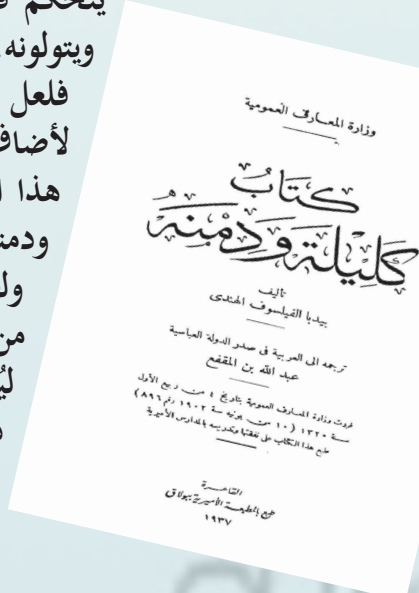 يتحكم
ويتولونه.
فلعل
لأضاف
هذا ا
ودمن
ول
من
وزارة المعارف العمومية
كتاب
كليلة ودمنة
تأليف
بيدبا الفيلسوف الهندى
ترجمه الى العربية فى صدر الدولة العباسية
عبد الله بن المقفع
قررت وزارة المعارف العمومية بتاريخ ٤ من ربيع الأول
سنة ١٣٢٠ (١٠ من يونيه سنة ١٩٠٢ رقم ٨٩٦)
طبع هذا الكتاب على نفقتها وتدريسه بالمدارس الأميرية
القاهرة
طبع بالمطبعة الأميرية ببولاق
١٩٣٧